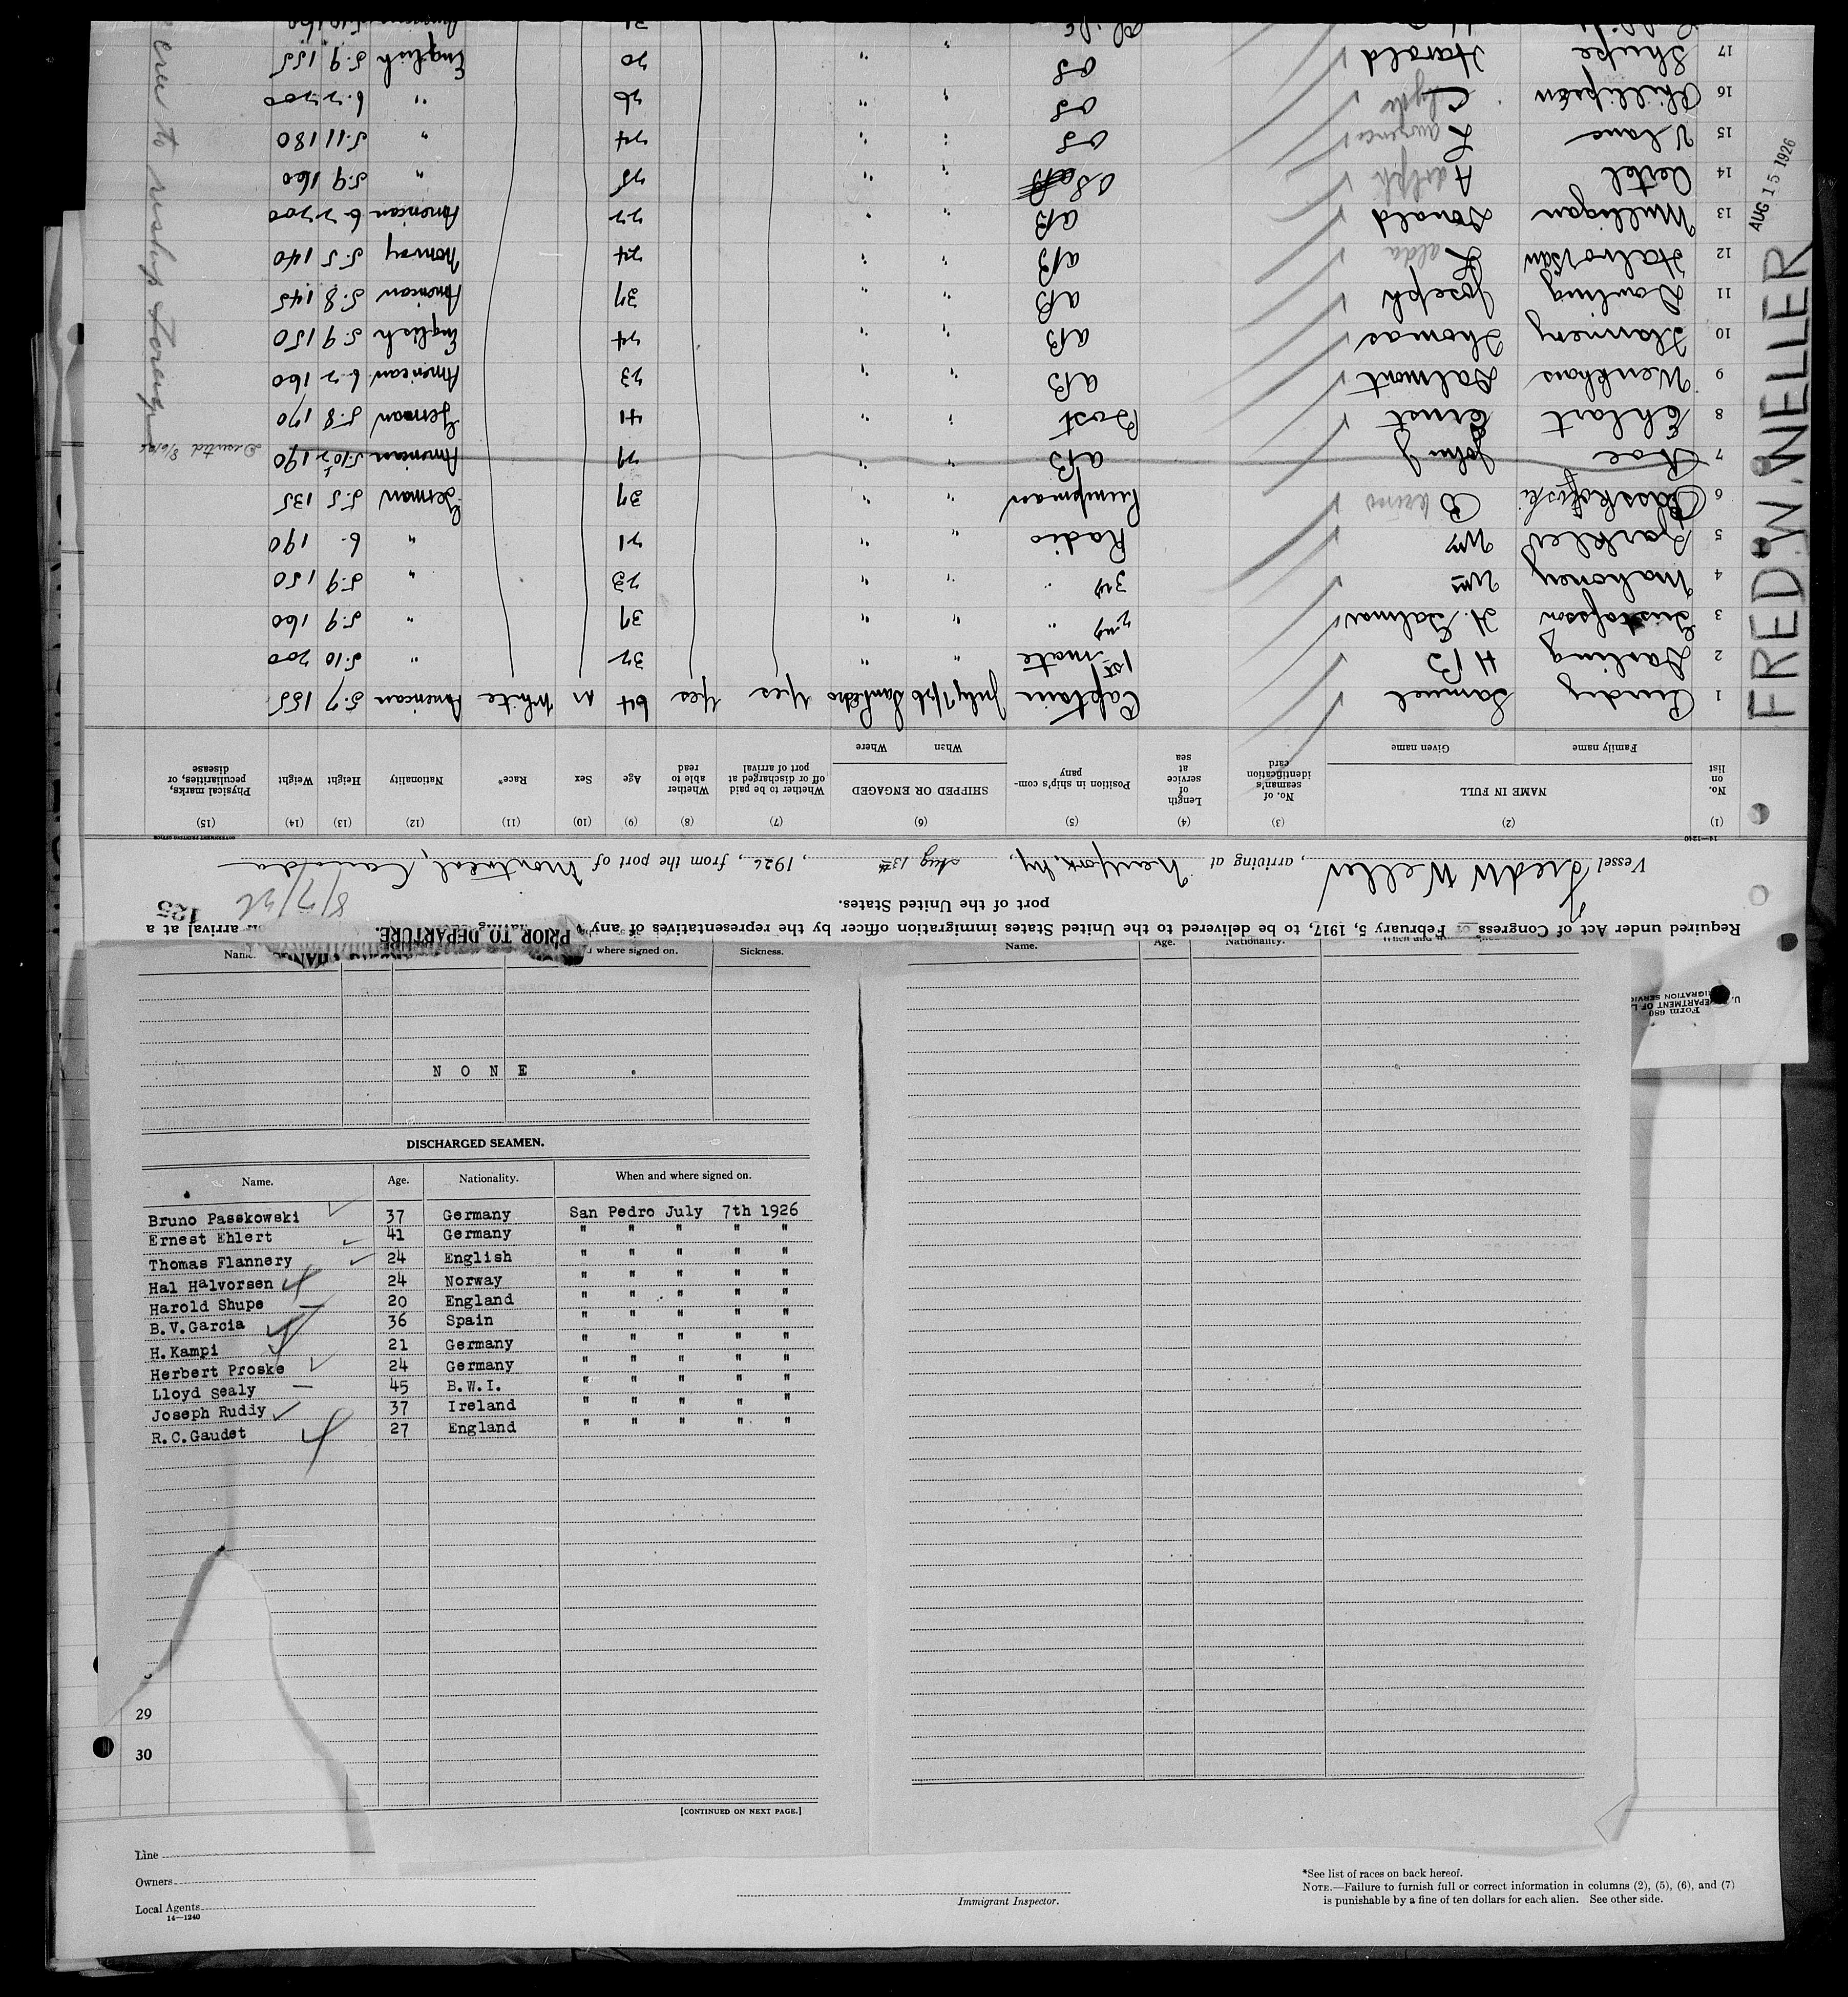 FRED W. WELLER
AUG 15 1926
Form 680
Required under Act of Congress of February 5, 1917, to be delivered to the United States immigration officer by the representatives of any arrival at a
port of the United States.
PRIOR TO DEPARTURE.
125
Vessel Fred W Weller, arriving at New York, NY, Aug 13th, 1926, from the port of Montreal, Canada
14—1240
GOVERNMENT PRINTING OFFICE
(1) (2) (3) (4) (5) (6) (7) (8) (9) (10) (11) (12) (13) (14) (15)
No. on list NAME IN FULL No. of seaman's identification card Length of service at sea Position in ship's company SHIPPED OR ENGAGED Whether to be paid off or discharged at port of arrival Whether able to read Age Sex Race* Nationality Height Weight Physical marks, peculiarities, or disease
Family name Given name When Where
1 Purdy Samuel Captain July 7/26 San Pedro Yes Yes 64 M White American 5.7 155
2 Darling H B 1st mate " " 32 " 5.10 200
3 Gustafson H. Halmar 2nd " " " 37 " 5.9 160
4 Mahoney Wm 3rd " " " 23 " 5.9 150
5 Wm Radio " " 21 " 6. 190
6 Bruno Pumpman " " 37 German 5.5 135
7 Roe John J AB " " 29 American 5.10½ 190 Deserted
8 Ehlart Ernst Bost " " 41 German 5.8 170
9 Menkhaus Dalmont AB " " 23 American 6.2 160
10 Flannery Thomas AB " " 24 English 5.9 150
11 Dowling Joseph AB " " 37 American 5.8 145
12 Halvorsen AB " " 24 Norway 5.5 140
13 Mulligan Donald AB " " 22 American 6.2 200
14 Oertel Adolph OS " " 25 " 5.9 160
15 Laurence OS " " 24 " 5.11 180
16 Phillipson Clyde OS " " 26 " 6.2 200
17 Shupe Harold OS " " 20 English 5.9 155
crew to reship foreign
Name. where signed on. Sickness.
NONE
DISCHARGED SEAMEN.
Name. Age. Nationality. When and where signed on.
Bruno Passkowski 37 Germany San Pedro July 7th 1926
Ernest Ehlert 41 Germany " " " " "
Thomas Flannery 24 English " " " " "
Hal Halvorsen 24 Norway " " " " "
Harold Shupe 20 England " " " " "
B.V.Garcia 36 Spain " " " " "
H.Kampi 21 Germany " " " " "
Herbert Proske 24 Germany " " " " "
Lloyd Sealy 45 B.W.I. " " " " "
Joseph Ruddy 37 Ireland " " " " "
R.C.Gaudet 27 England " " " " "
[CONTINUED ON NEXT PAGE.]
Name. Age. Nationality.
29
30
Line
Owners
Local Agents
14—1240
Immigrant Inspector.
*See list of races on back hereof.
NOTE.—Failure to furnish full or correct information in columns (2), (5), (6), and (7)
is punishable by a fine of ten dollars for each alien. See other side.